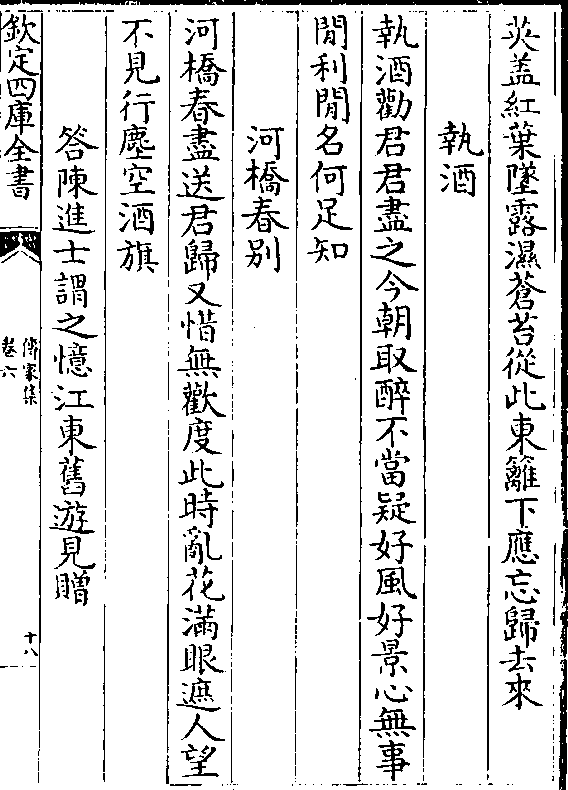 英盖紅葉墜露濕蒼苔從此東籬下應忘歸去來
執酒
執酒勸君君盡之今朝取醉不當疑好風好景心無事
閒利閒名何足知
河橋春别
河橋春盡送君歸又惜無歡度此時亂花滿眼遮人望
不見行塵空酒旗
答陳進士謂之憶江東舊遊見贈
欽定四庫全書
傳家集
卷六
十八